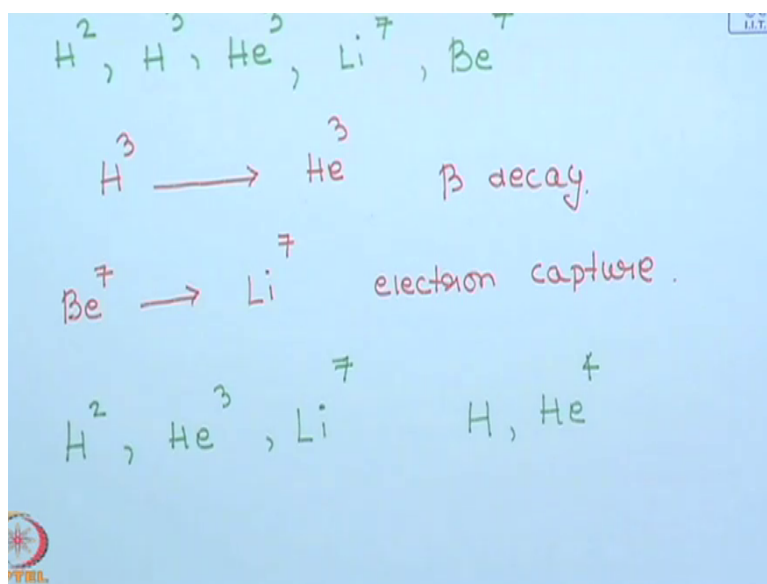 H², H³, He³, Li⁷, Be⁷
I.I.T.
H³ → He³ β decay.
Be⁷ → Li⁷ electron capture.
H², He³, Li⁷ H, He⁴
PTEL